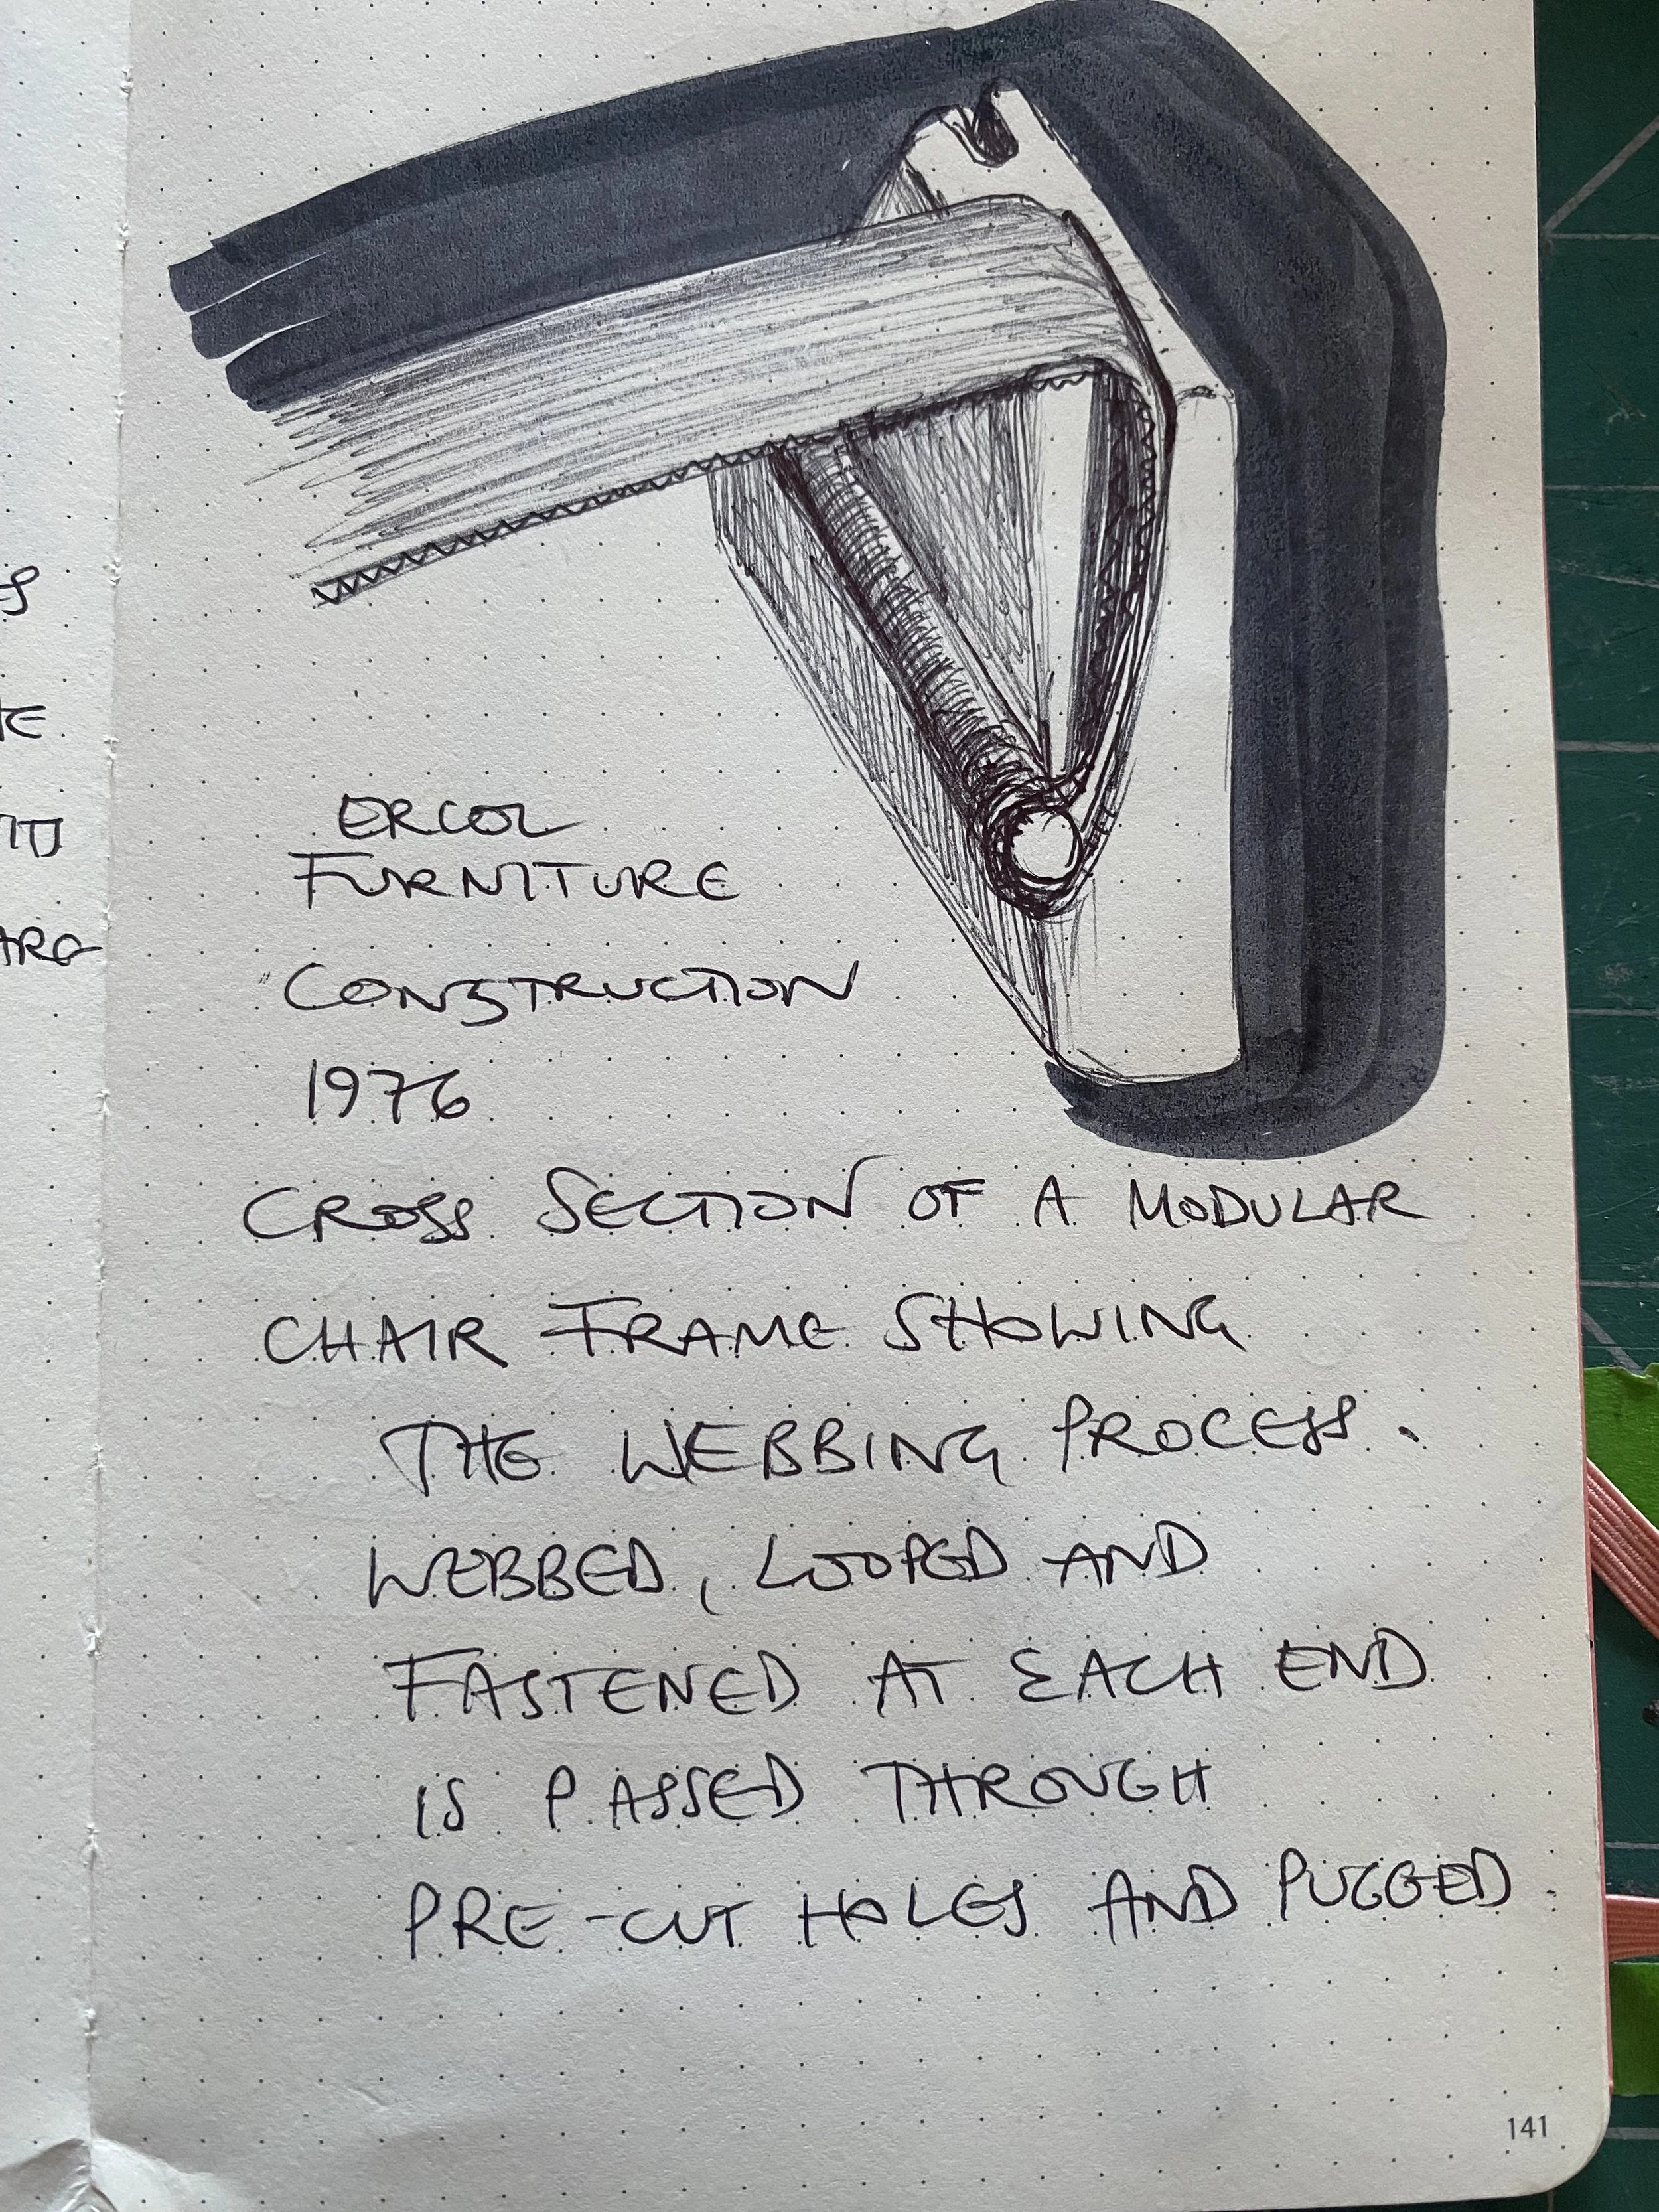 ERCOL
FURNITURE
CONSTRUCTION
1976
CROSS SECTION OF A MODULAR
CHAIR FRAME SHOWING
THE WEBBING PROCESS.
WEBBED, LOOPED AND
FASTENED AT EACH END
IS PASSED THROUGH
PRE-CUT HOLES AND PUGGED
141